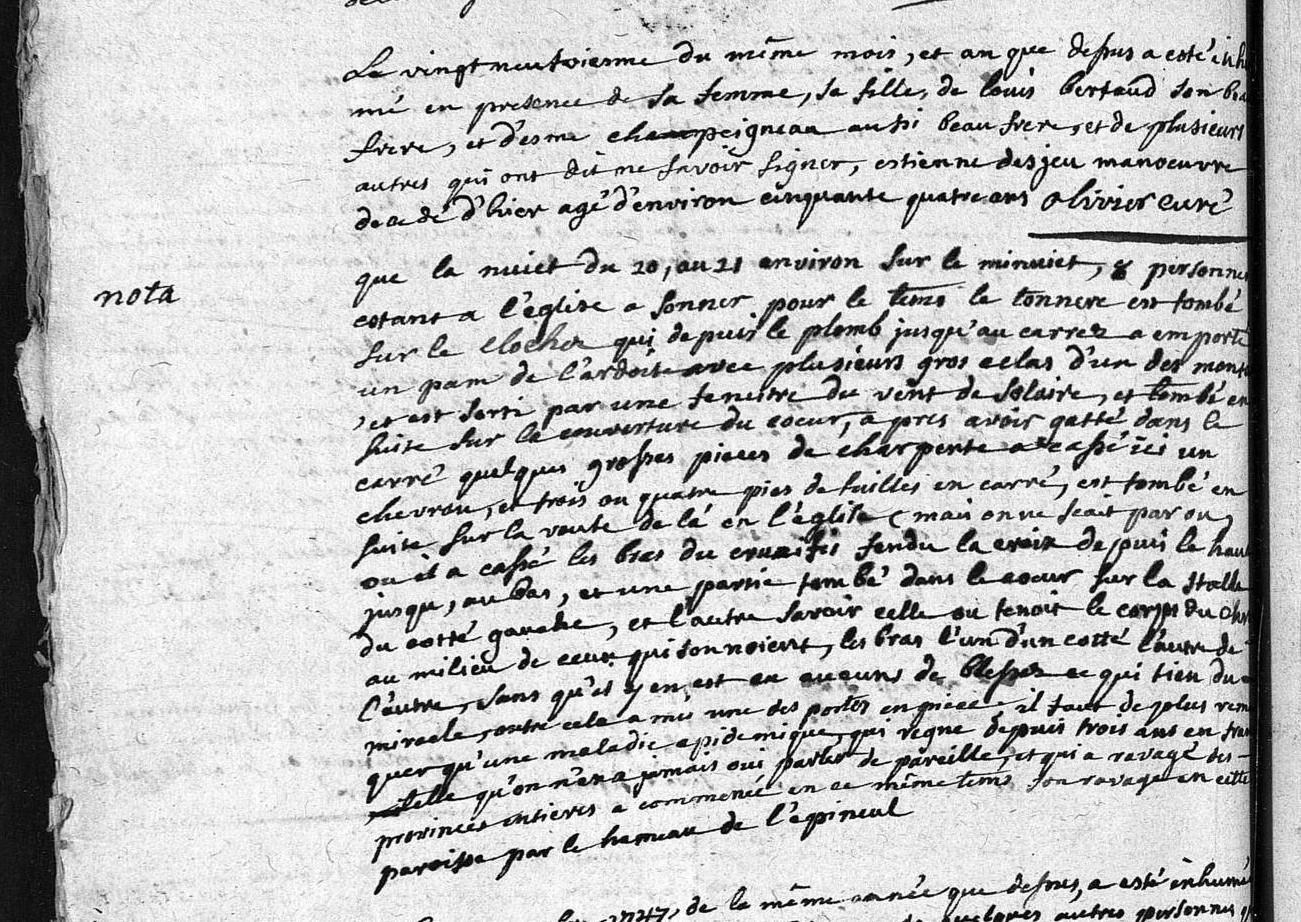 Le vingt neuvoiesme du même mois, et an que dessus a esté inhu
mé en presence de sa femme, sa fille, de louis bertaud son beau
frere, et d'esme champeigneau aussi beau frere, et de plusieurs
autres qui ont dit ne savoir signer, estienne desjeu manoeuvre
decedé d'hier agé d'environ cinquante quatre ans olivier curé
nota
que la nuict du 20, au 21 anviron sur le minuict, 8 personnes
estant a l'église a sonner pour le tems le tonnere est tombé
sur le clocher qui depuis le plomb jusqu'au carrez a emporté
un pam de l'ardoise avec plusieurs gros eclas d'un des mont
, et est sorti par une fenestre du vent de solaire, et tombé en
suite sur la couverture du coeur, apres avoir gatté dans le
carré quelques grosses pieces de charpente a cassé ici un
chevron, et trois ou quatre pies de tuilles en carré, est tombé en
suite sur la voute de là en l'église (mais on ne scait par ou
ou il a cassé les bras du crucifis fendu la croix depuis le haut
jusqu, au bas, et une partie tombé dans le coeur sur la stalle
du cotté gauche, et l'autre savoir celle ou tenoit le corps du Chri
au milieu de ceux qui sonnoient, les bras l'un d'un cotté l'autre de
l'autre, sans qu'il y en est eu aucuns de blessez ce qui tien du
miracle, outre cela a mis une des portes en pieces il faut de plus rem
quer qu'une maladie epidemique, qui regne depuis trois ans en fran
telle qu'on n'en a jamais oui parler de pareille, et qui a ravagé des
provinces entieres a commencé en ce même tems son ravage en cette
paroisse par le hameau de l'epineul
1747, de la même année que dessus, a esté inhumé
de quelques autres personnes